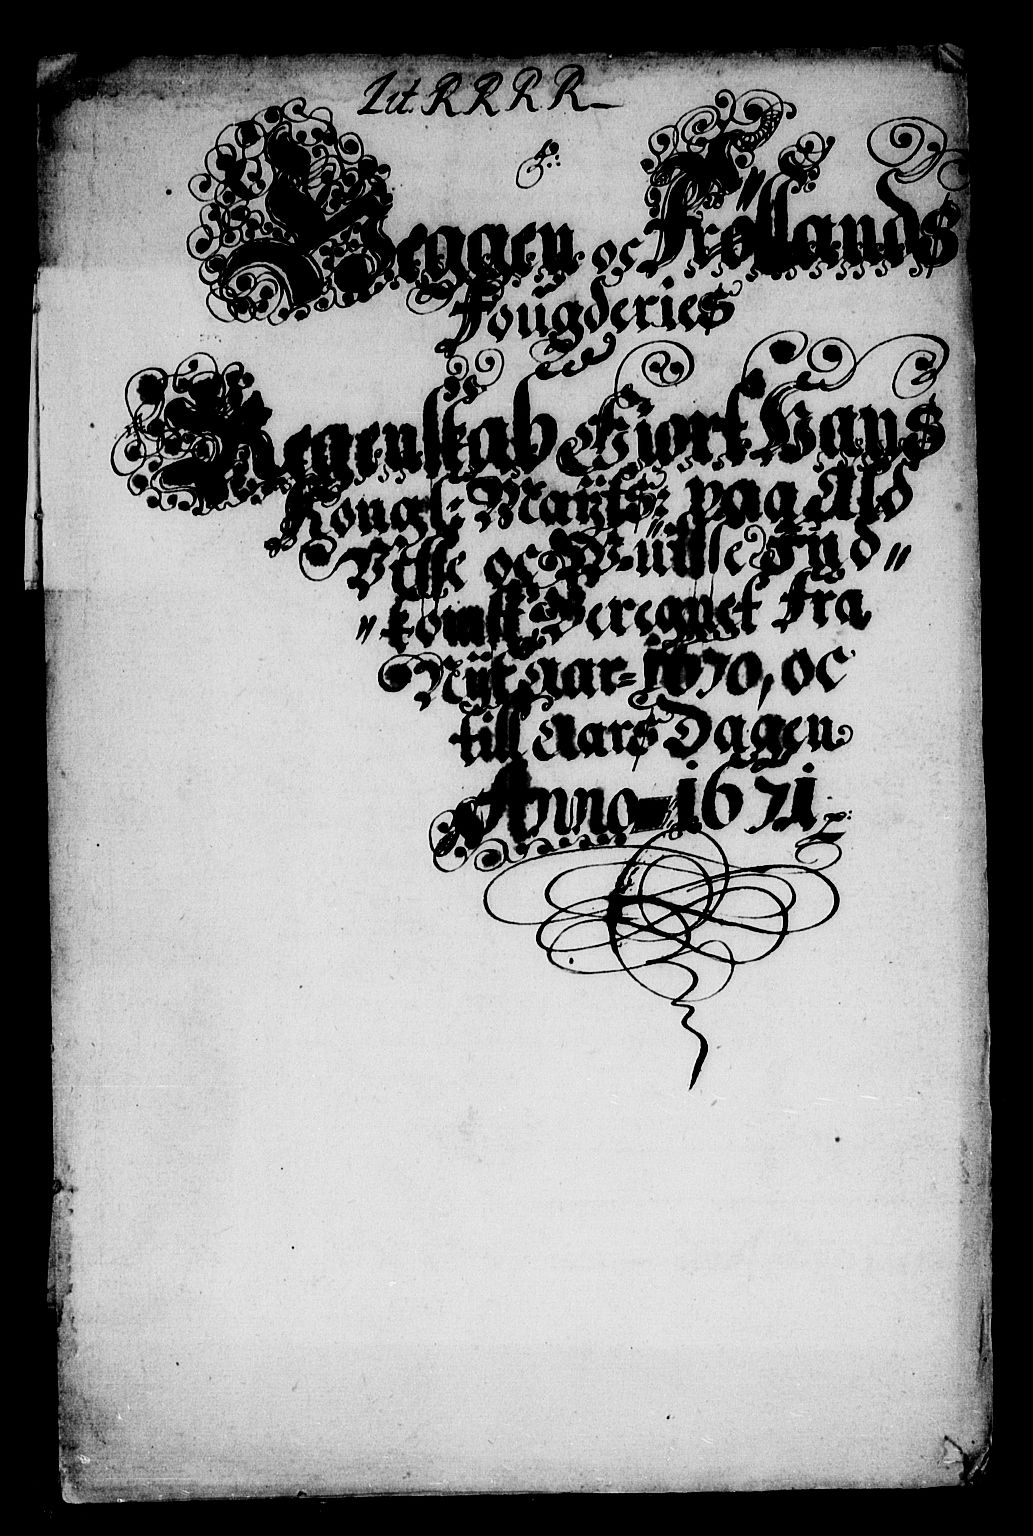 Lit. R R R R
Heggen oc Frøllands
Fougderies
Regenskab Giort Hans
Kongl: Maÿts: paa Ald
Visse oc U-uisse Ind〃
〃komst Beregnet fra
Nÿt aar= 1670, oc
till Aars Dagen
Anno 1671